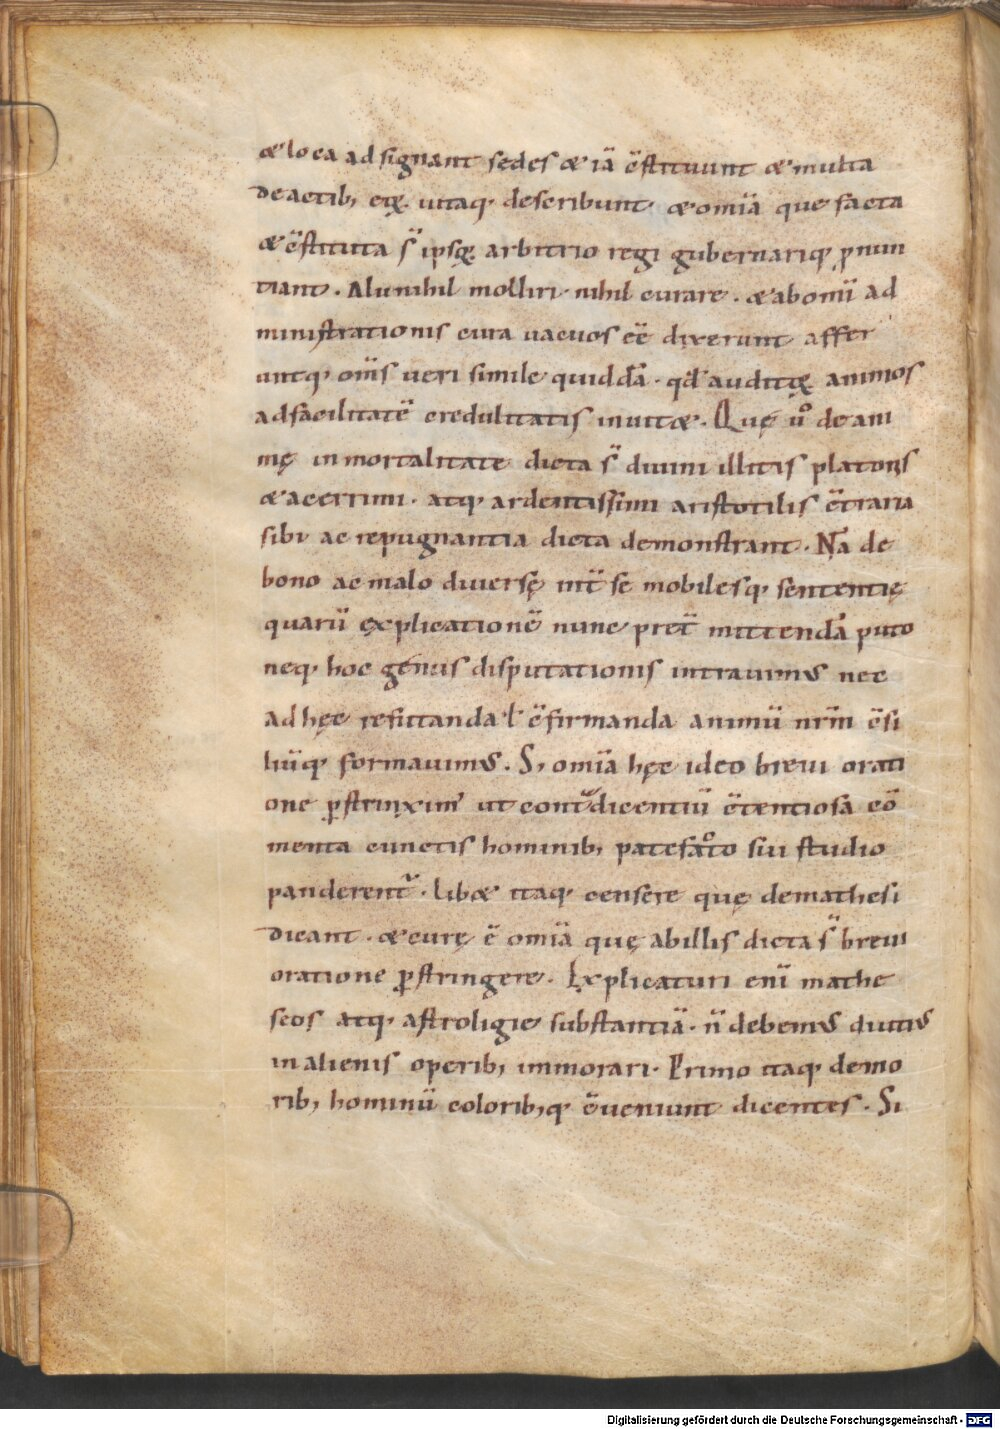 & loca adsignant sedes & iā c̄stituunt & multa
deactib; eoꝝ uitaq; describunt & omīa que facta
& c̄stituta s̄ ipsoꝝ arbitrio regi gubernariq; ꝓnun
tiant. Alii nihil molliri nihil curare. & abomī ad
ministrationis cura uacuos eē dixerunt affer
untq; om̄s ueri simile quiddā. qd̄ auditoꝝ animos
adfacilitatē credulitatis inuit&. Quę ū̊ deani
mę inmortalitate dicta s̄ diuini illius platonis
& acerrimi. atq; ardentissimi aristotilis c̄traria
sibi ac repugnantia dicta demonstrant. Nā de
bono ac malo diuersę int̄ se mobilesq; sententię
quarū explicationē nunc pret̄ mittendā puto
neq; hoc genus disputationis intrauimus nec
ad hęc refutanda ł c̄firmanda animū nrm̄ c̄si
liūq; formauimus. Si omīa hęc ideo breui orati
one ꝑstrinxim' ut contᵃdicentiū c̄tentiosa cō
menta cunctis hominib; patefacto sui studio
panderent᷑. Lib& itaq; censere quę demathesi
dicant. & curę ē omīa quę abillis dicta s̄ breui
oratione ꝑstringere. Explicaturi enī mathe
seos atq; astroligie substantiā. n̄ debemus diutius
in alienis operib; immorari. Primo itaq; demo
rib; hominū colorib;q; c̄ueniunt dicentes. Si
Digitalisierung gefördert durch die Deutsche Forschungsgemeinschaft - DFG